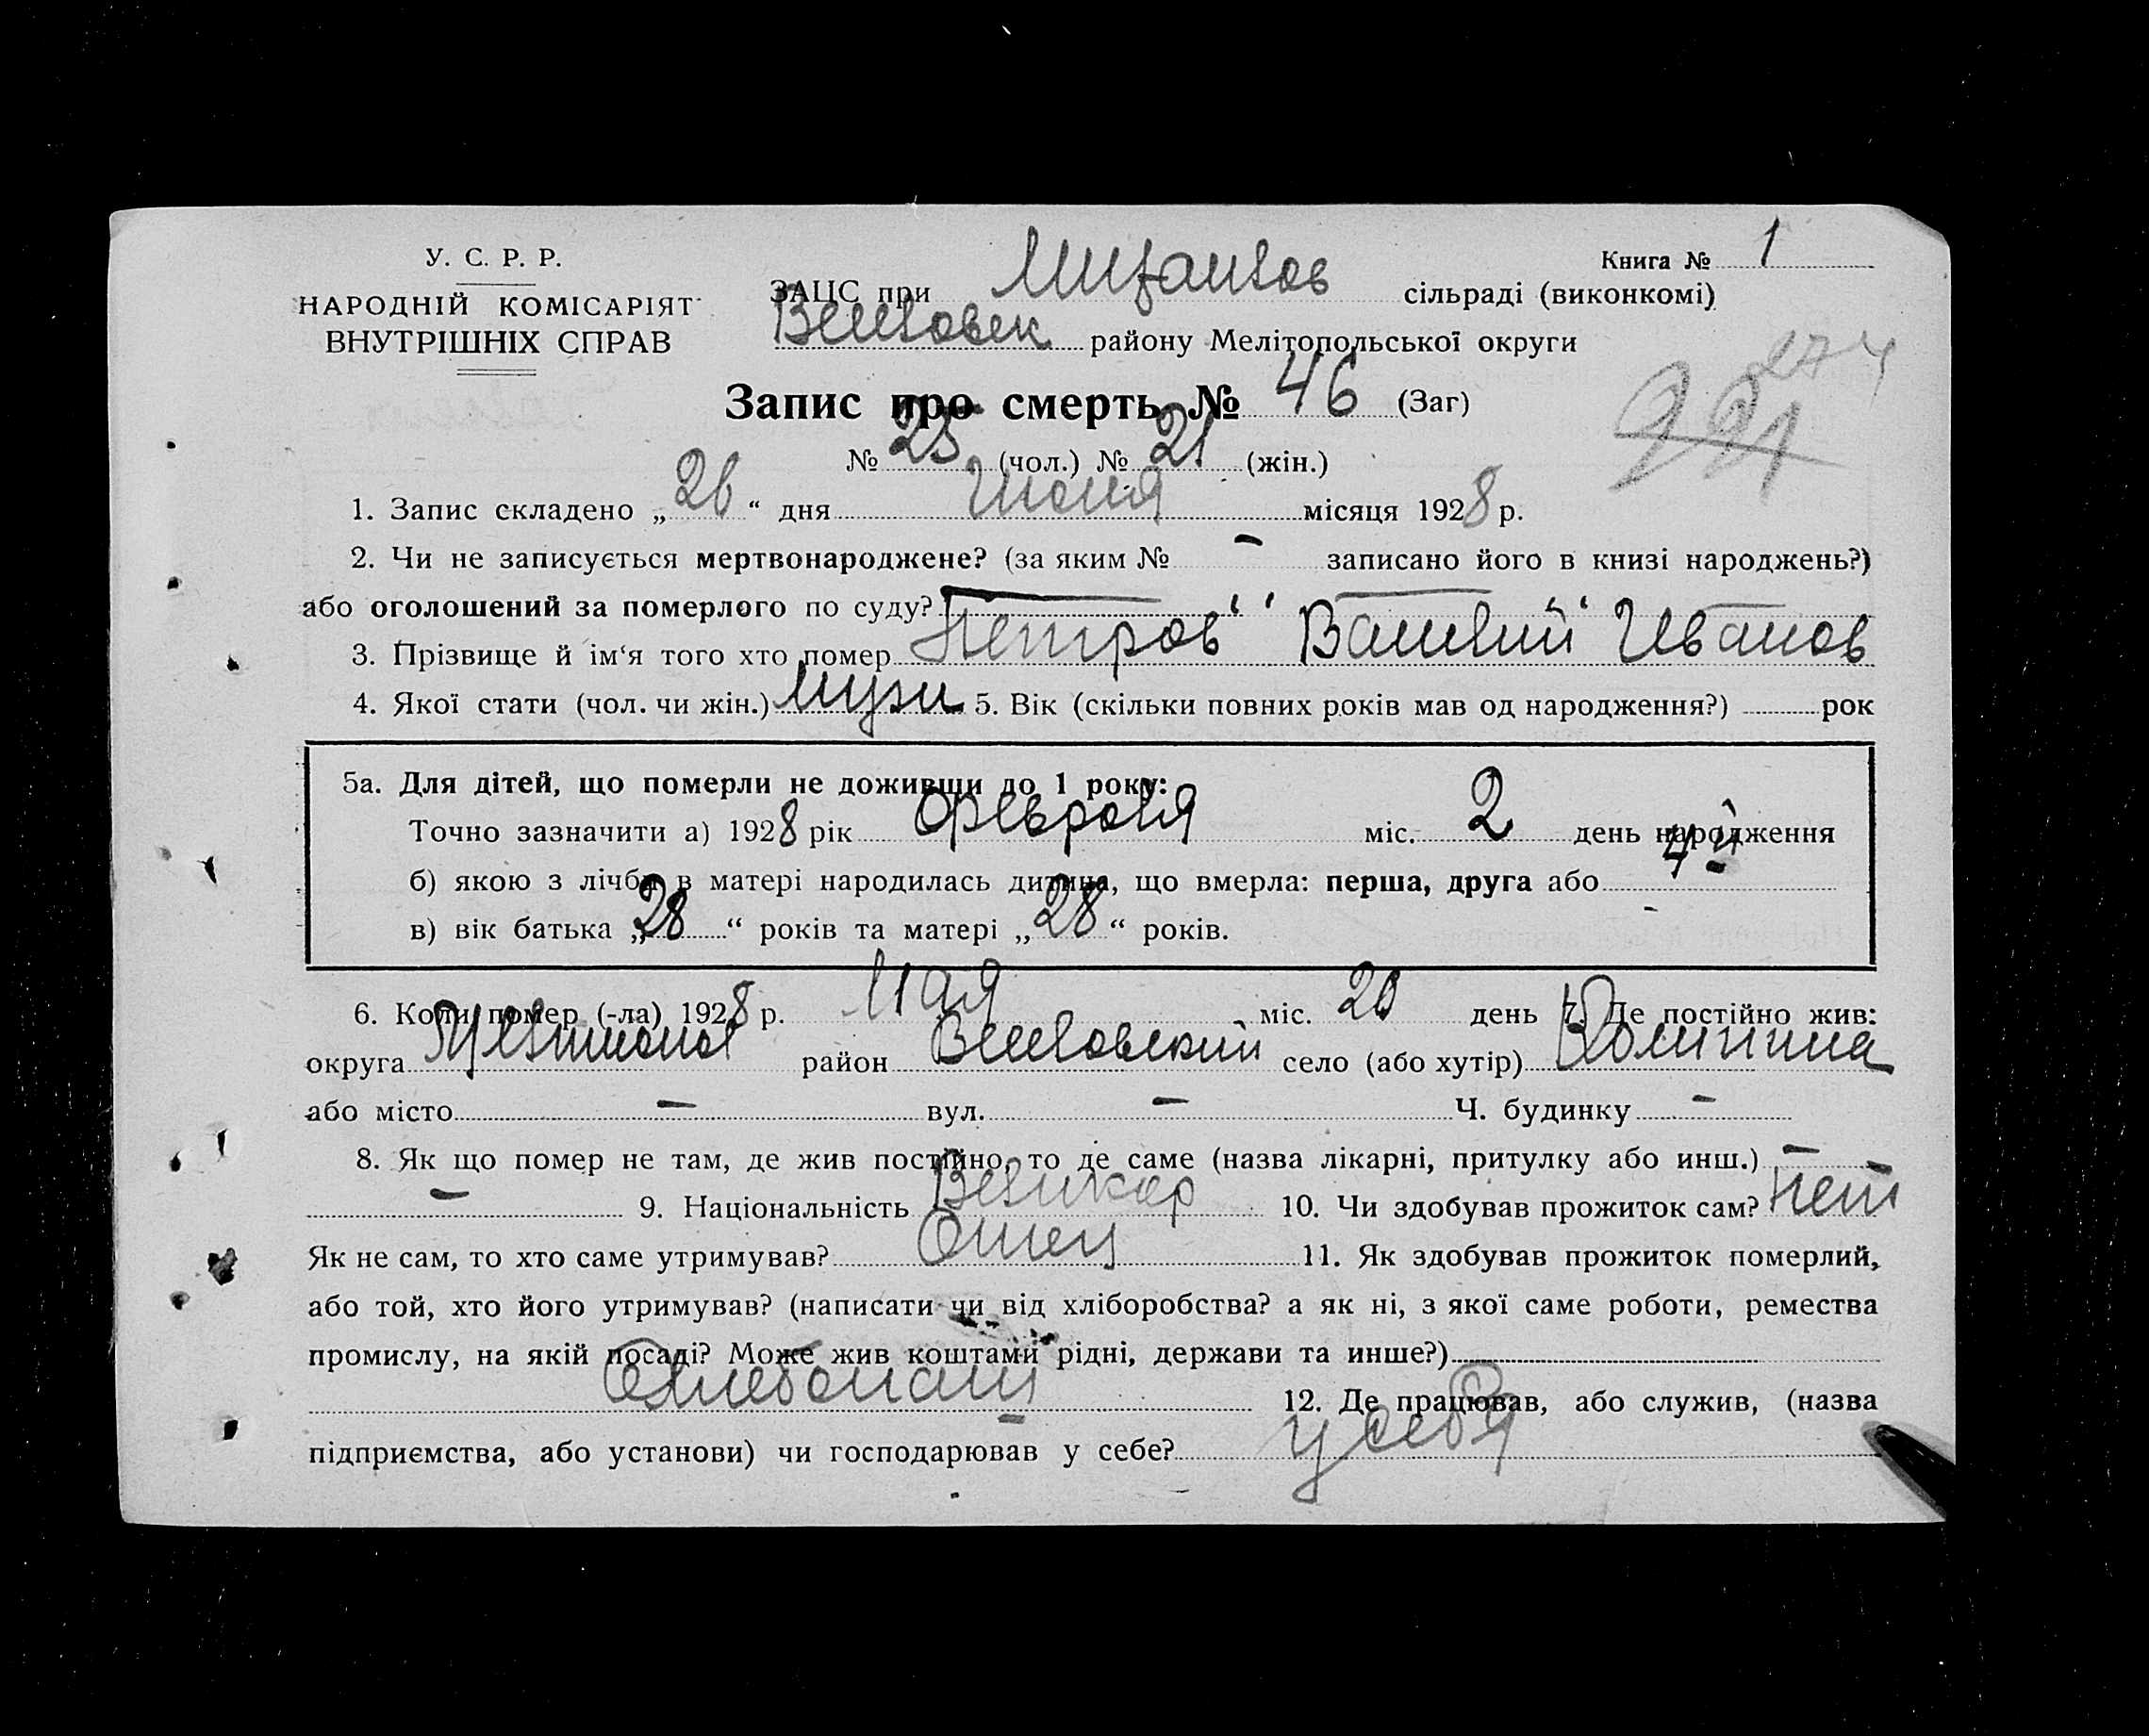 У. С. Р. Р.
НАРОДНІЙ КОМІСАРІЯТ
ВНУТРІШНІХ СПРАВ
Книга № 1
ЗАЦС при сільраді (виконкомі)
Веселовск району Мелітопольської округи
274
Запис про смерть № 46 (Заг)
991
№ 25 (чол.) № 21 (жін.)
1. Запис складено „26“ дня Июня місяця 1928 р.
2. Чи не записується мертвонароджене? (за яким № – записано його в книзі народжень?)
або оголошений за померлого по суду?
3. Прізвище й ім‘я того хто помер Петров Василий Иванов
4. Якої стати (чол. чи жін.) мужч 5. Вік (скільки повних років мав од народження?) рок
5а. Для дітей, що померли не доживши до 1 року:
Точно зазначити а) 1928 рік Февраля міс. 2 день народження
б) якою з лічби в матері народилась дитина, що вмерла: перша, друга або 4й
в) вік батька „28“ років та матері „28“ років.
6. Коли помер (-ла) 1928 р. Мая міс. 20 день 7. Де постійно жив:
округа район Веселовский село (або хутір)
або місто – вул. – Ч. будинку –
8. Як що помер не там, де жив постійно, то де саме (назва лікарні, притулку або инш.) –
– 9. Національність Великор 10. Чи здобував прожиток сам? Нет
Як не сам, то хто саме утримував? Отец 11. Як здобував прожиток померлий,
або той, хто його утримував? (написати чи від хліборобства? а як ні, з якої саме роботи, ремества
промислу, на якій посаді? Може жив коштами рідні, держави та инше?)
Хлебопаш 12. Де працював, або служив, (назва
підприємства, або установи) чи господарював у себе? у себя